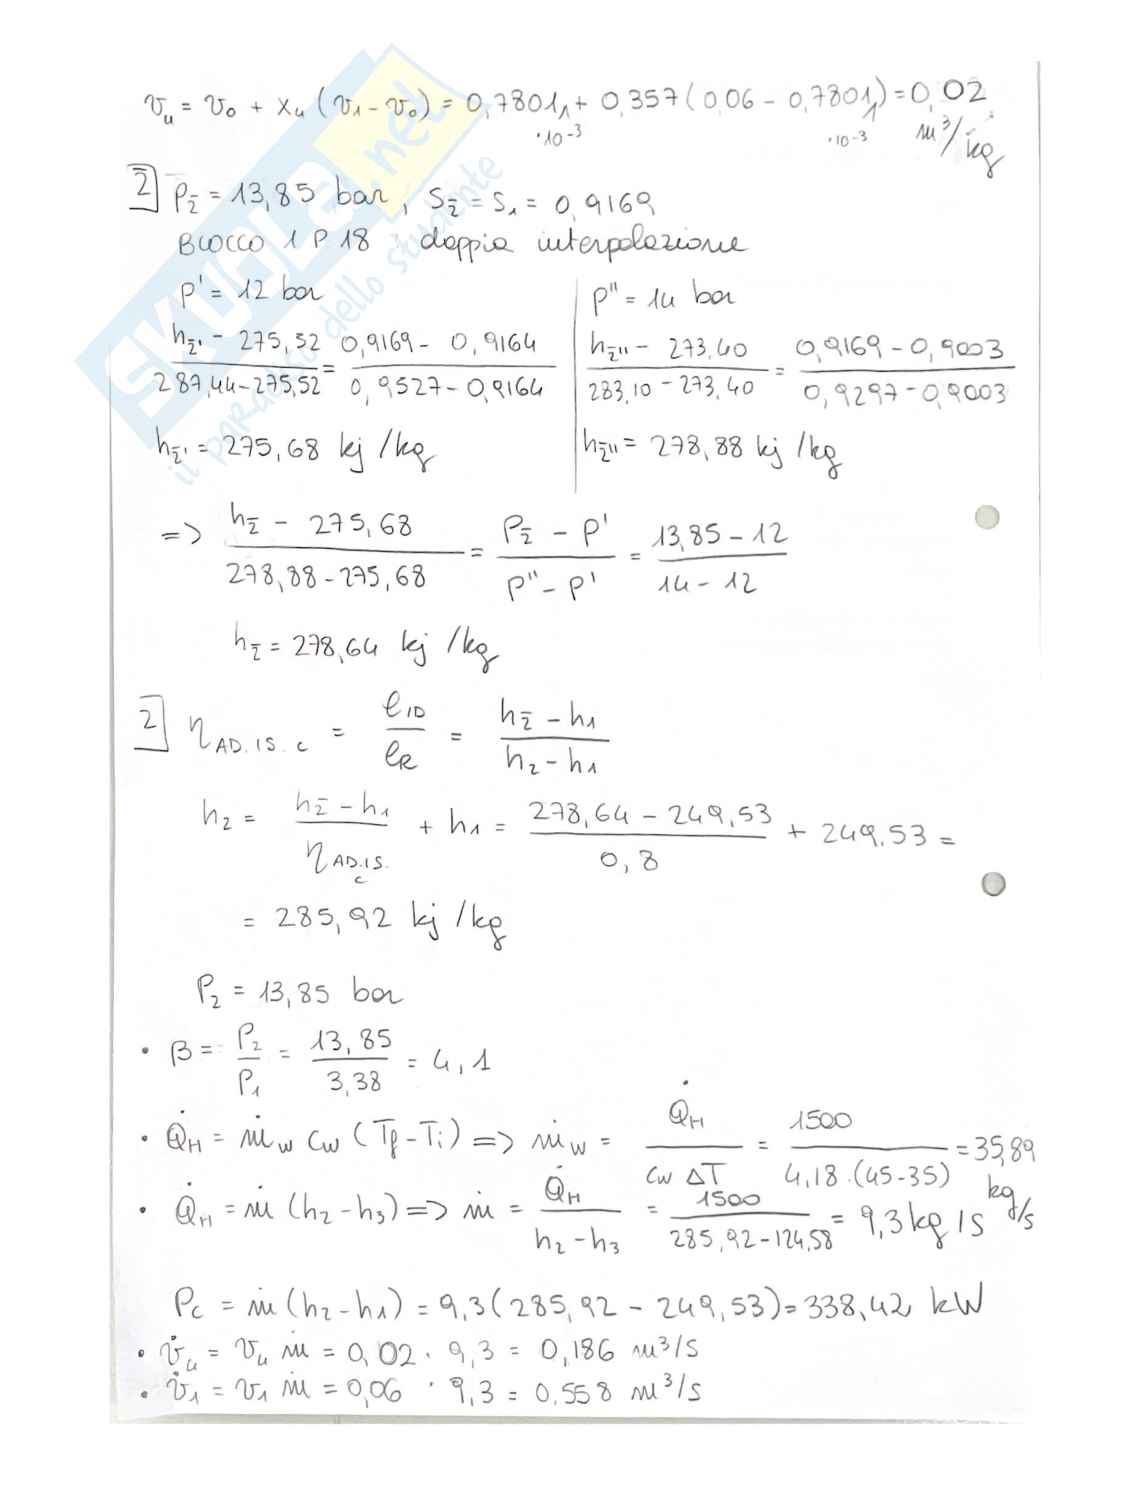 v₄ = v₀ + x₄ (v₁ - v₀) = 0,7801 · 10⁻³ + 0,357 (0,06 - 0,7801 · 10⁻³) = 0,02 m³/kg
2̄] P2̄ = 13,85 bar, S2̄ = S₁ = 0,9169
BLOCCO 1 P 18 doppia interpolazione
P' = 12 bar
(h2̄' - 275,52) / (287,44 - 275,52) = (0,9169 - 0,9164) / (0,9527 - 0,9164)
h2̄' = 275,68 kj/kg
P" = 14 bar
(h2̄" - 273,40) / (283,10 - 273,40) = (0,9169 - 0,9003) / (0,9297 - 0,9003)
h2̄" = 278,88 kj/kg
=> (h2̄ - 275,68) / (278,88 - 275,68) = (P2̄ - P') / (P" - P') = (13,85 - 12) / (14 - 12)
h2̄ = 278,64 kj/kg
2] η AD.IS.C = ℓID / ℓR = (h2̄ - h₁) / (h₂ - h₁)
h₂ = (h2̄ - h₁) / η AD.IS.C + h₁ = (278,64 - 249,53) / 0,8 + 249,53 =
= 285,92 kj/kg
P₂ = 13,85 bar
• β = P₂ / P₁ = 13,85 / 3,38 = 4,1
• Q̇H = ṁw cw (Tf - Ti) => ṁw = Q̇H / (cw ΔT) = 1500 / (4,18 · (45-35)) = 35,89 kg/s
• Q̇H = ṁ (h₂ - h₃) => ṁ = Q̇H / (h₂ - h₃) = 1500 / (285,92 - 124,58) = 9,3 kg/s
Pc = ṁ (h₂ - h₁) = 9,3 (285,92 - 249,53) = 338,42 kW
• v̇₄ = v₄ ṁ = 0,02 · 9,3 = 0,186 m³/s
• v̇₁ = v₁ ṁ = 0,06 · 9,3 = 0,558 m³/s
SKUOLA.net
il paradiso dello studente